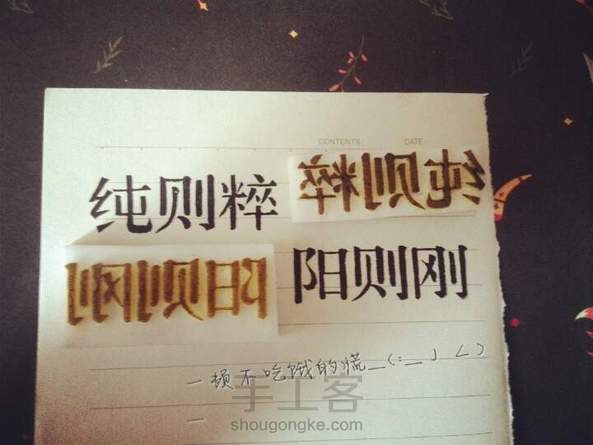 CONTENTS DATE
纯则粹 纯则粹
阳则刚 阳则刚
一顿不吃饿的慌_(:_」∠)
一
手工客
shougongke.com